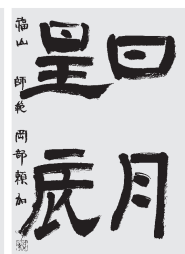 日月
星辰
福山 師範 岡部頼加